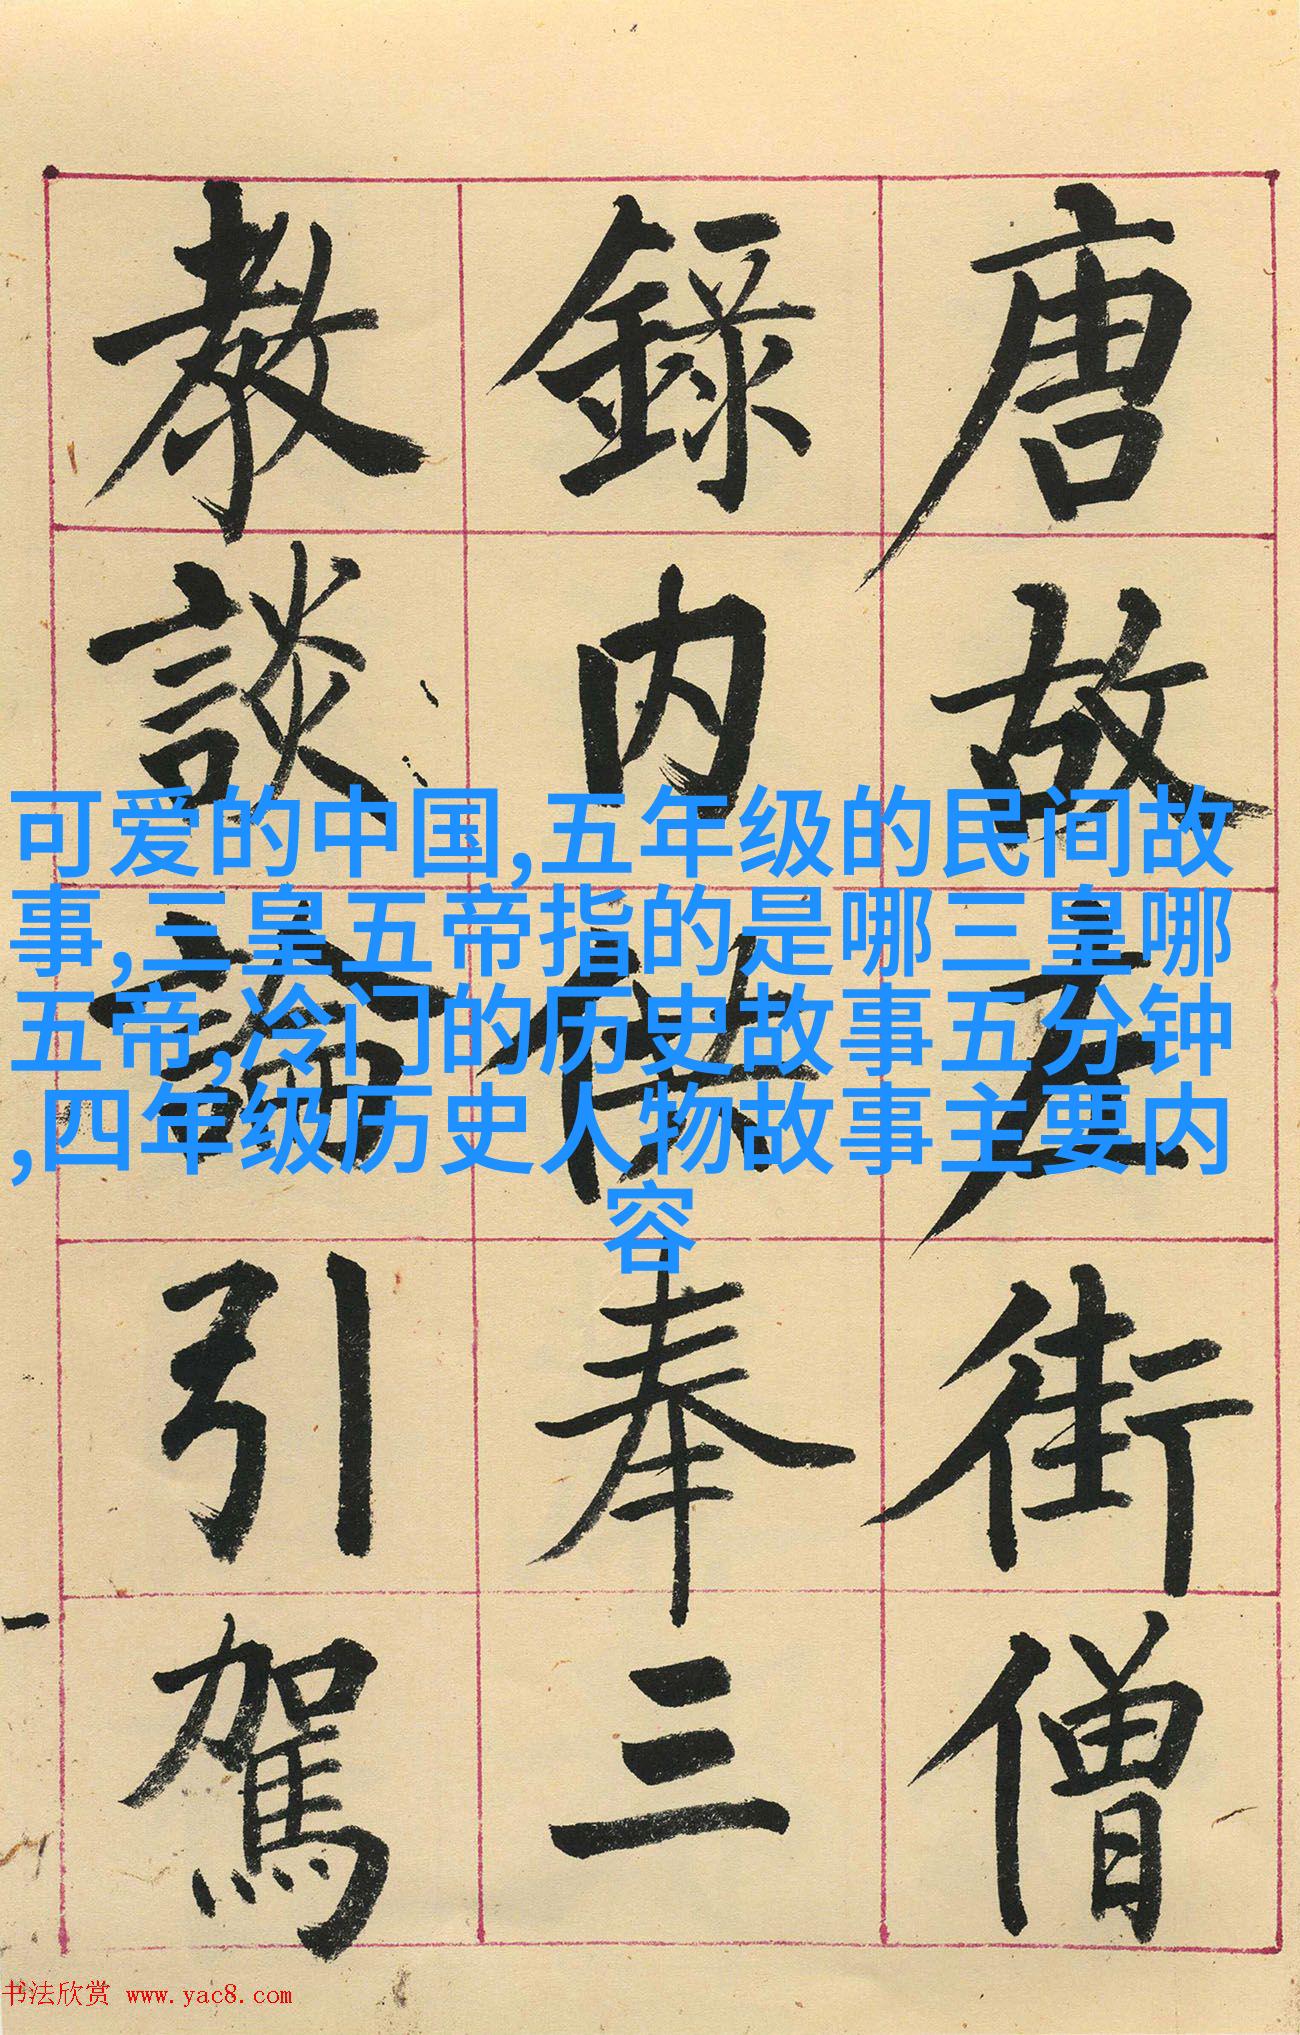 唐故左街僧
錄内供奉三
教談論引駕
可爱的中国,五年级的民间故
事,三皇五帝指的是哪三皇哪
五帝,冷门的历史故事五分钟
,四年级历史人物故事主要内
容
书法欣赏 www.yac8.com